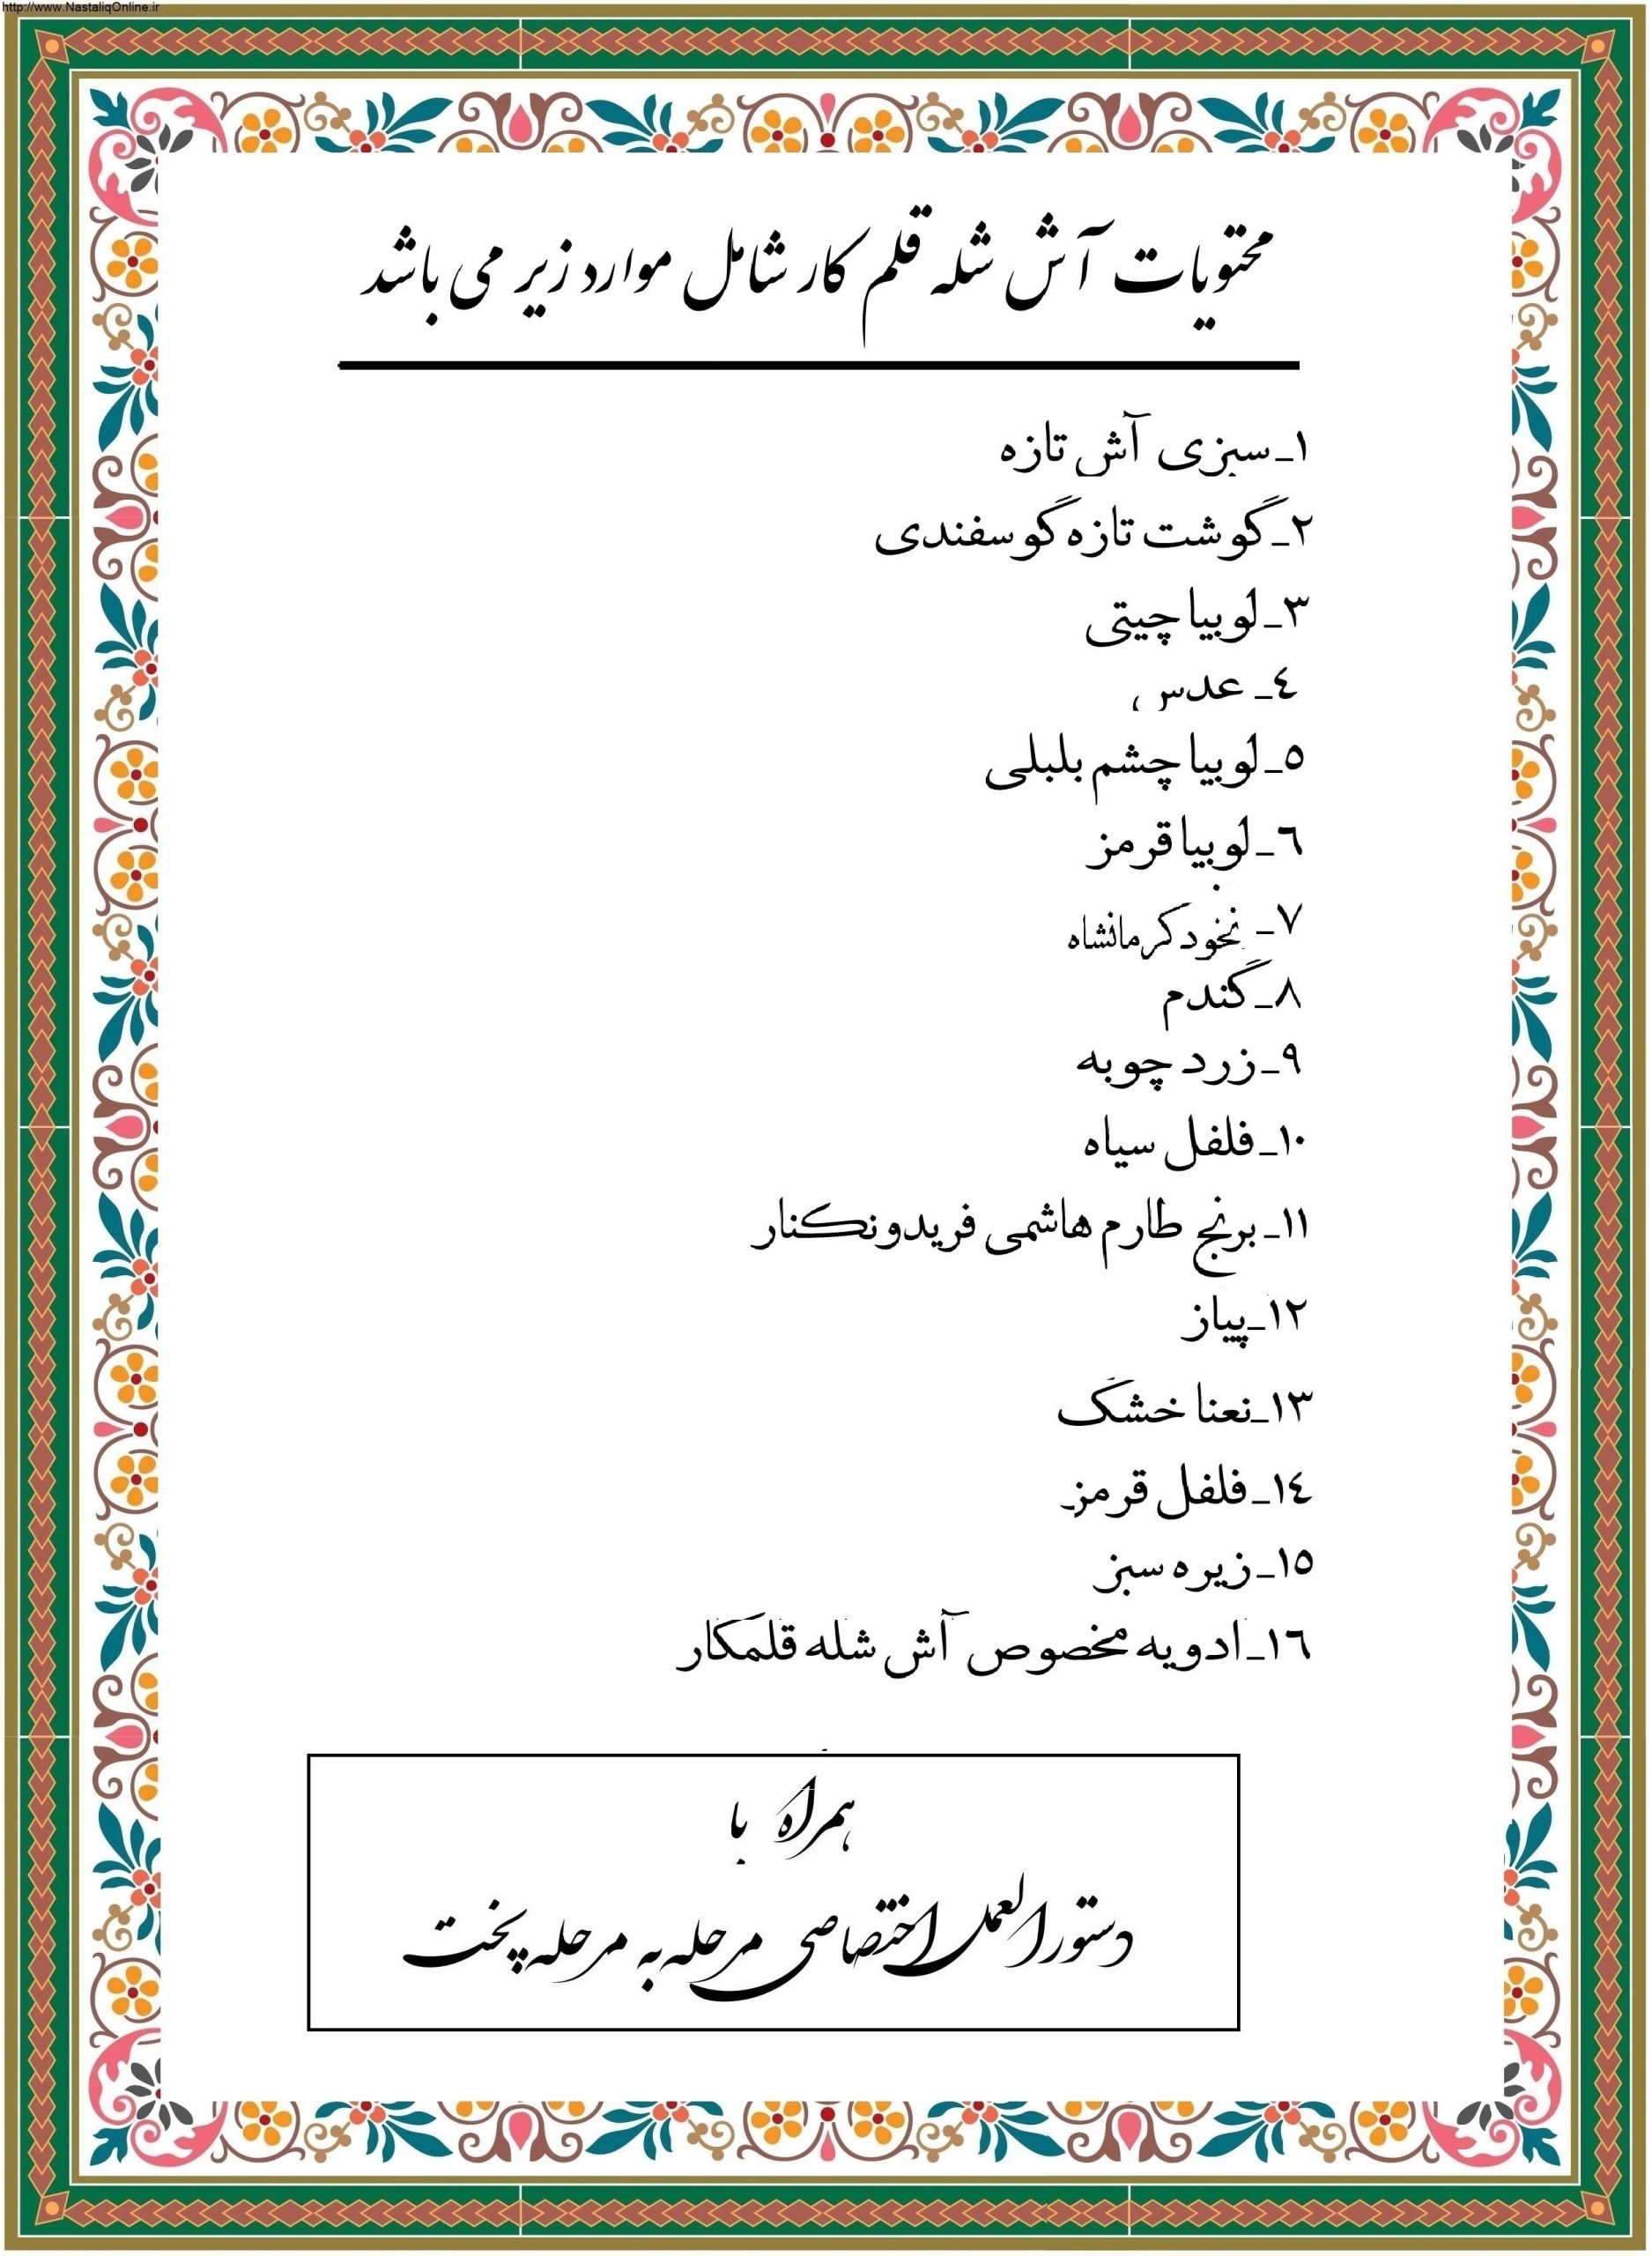 http://www.NastaliqOnline.ir
محتویات آش شله قلم کار شامل موارد زیر می باشد
۱_سبزی آش تازه
۲_گوشت تازه گوسفندی
۳_لوبیا چیتی
٤_ عدس
٥_لوبیا چشم بلبلی
٦_لوبیا قرمز
۷_ نخود کرمانشاه
۸_گندم
۹_زرد چوبه
۱۰_فلفل سیاه
۱۱_برنج طارم هاشمی فریدونکنار
۱۲_پیاز
۱۳_نعنا خشک
۱٤_فلفل قرمز
۱٥_زیره سبز
۱٦_ادویه مخصوص آش شله قلمکار
همراه با
دستورالعمل اختصاصی مرحله به مرحله پخت